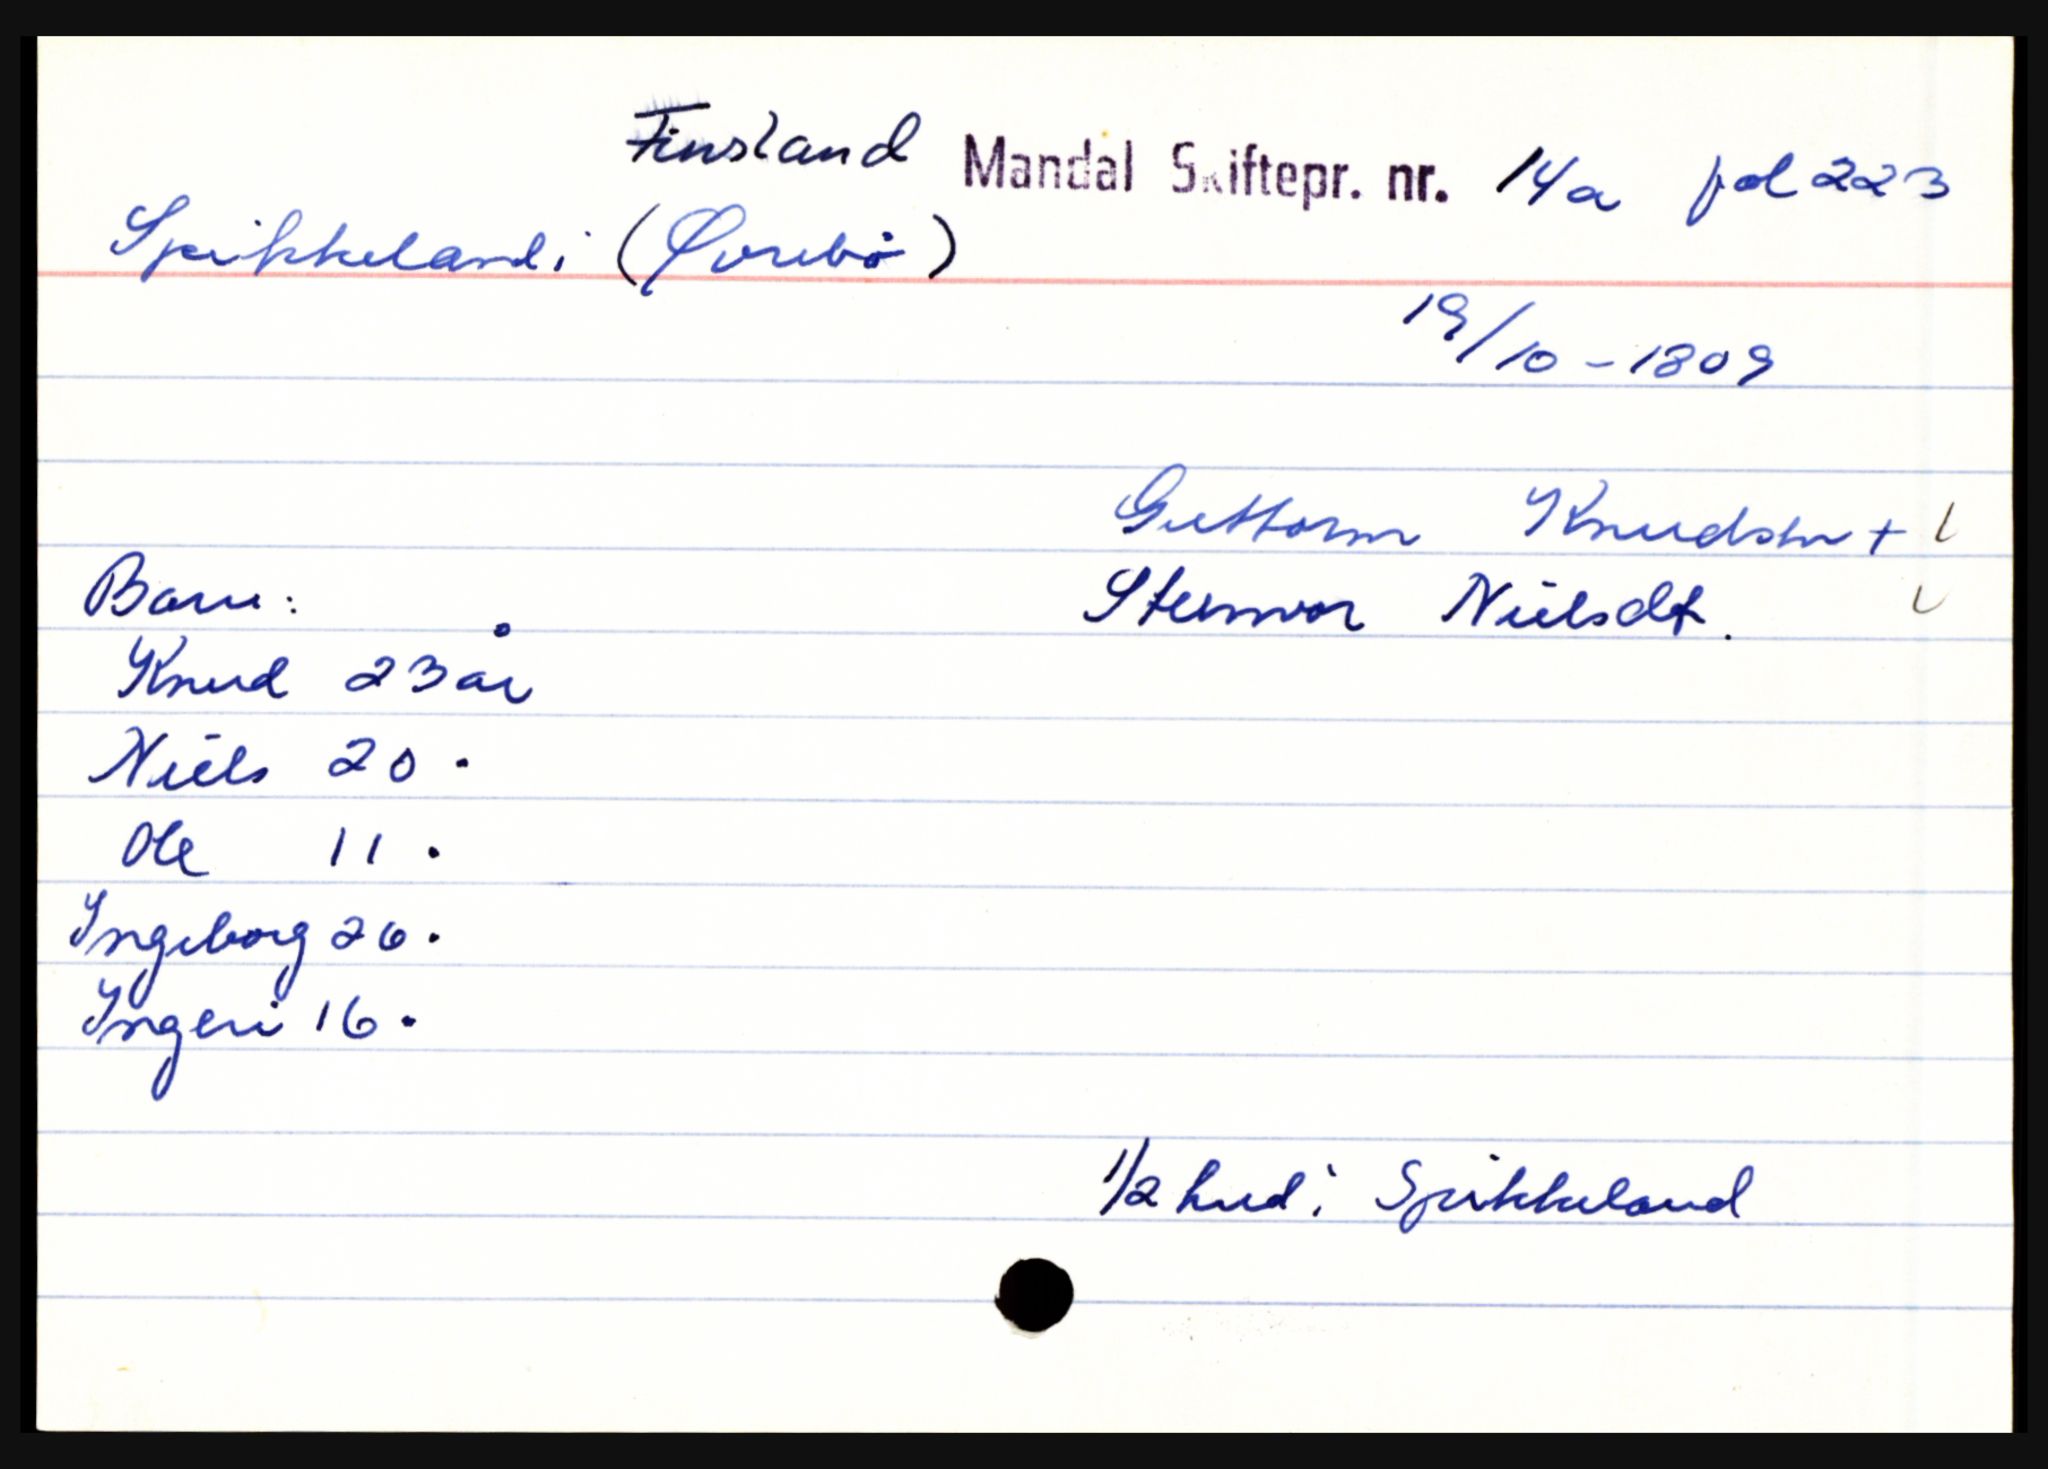 Finsland Mandal Skiftepr. nr. 14a fol 223
Spikkeland i (Øvrebø)
19/10 - 1809
Guttorm Knudsen +
Barn: Stennor Nielsdt.
Knud 23 år
Niels 20 .
Ole 11 .
Ingeborg 26 .
Ingeri 16 .
1/2 hud i Spikkeland